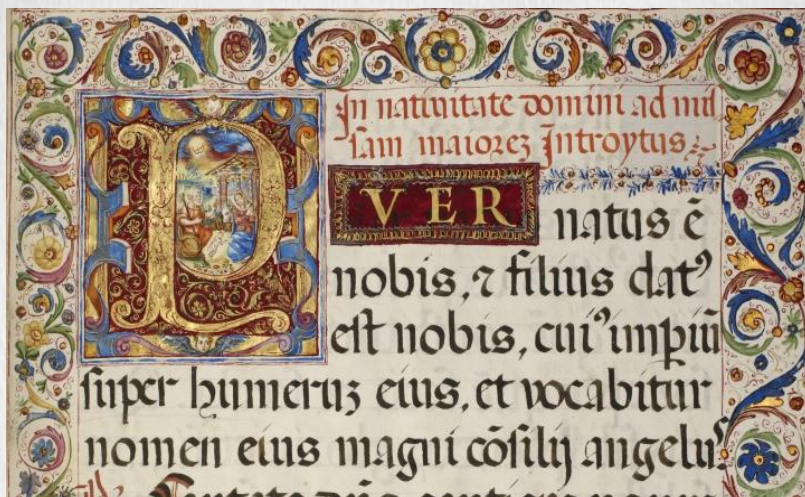 In natiuitate domini ad mis
sam maiorez Introytus
PVER natus ē
nobis, ⁊ filius datꝰ
est nobis, cuiꝰ imꝑiū
super humeruꝫ eius, et vocabitur
nomen eius magni cōsilij angelus.
Cantate dño